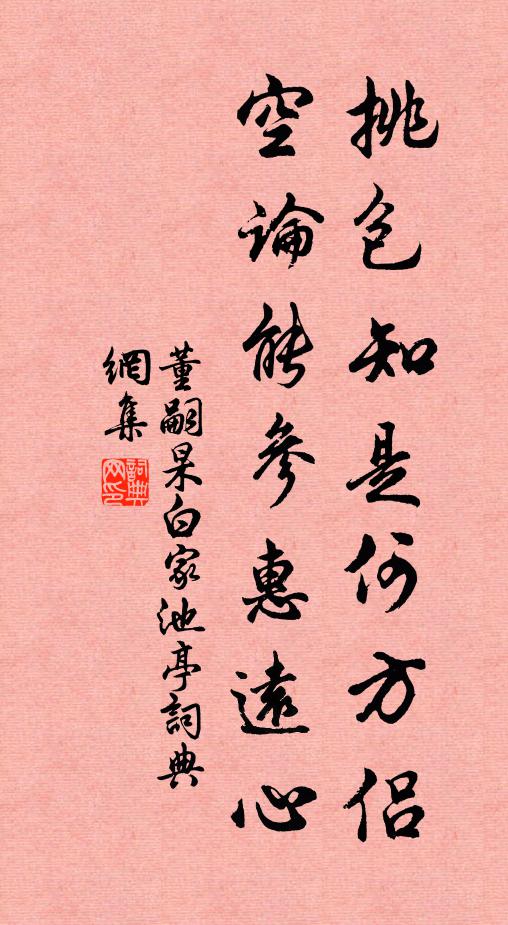 挑包知是何方侣
空論能參惠遠心
董嗣杲白家池亭詞典
網集
詞典
网印